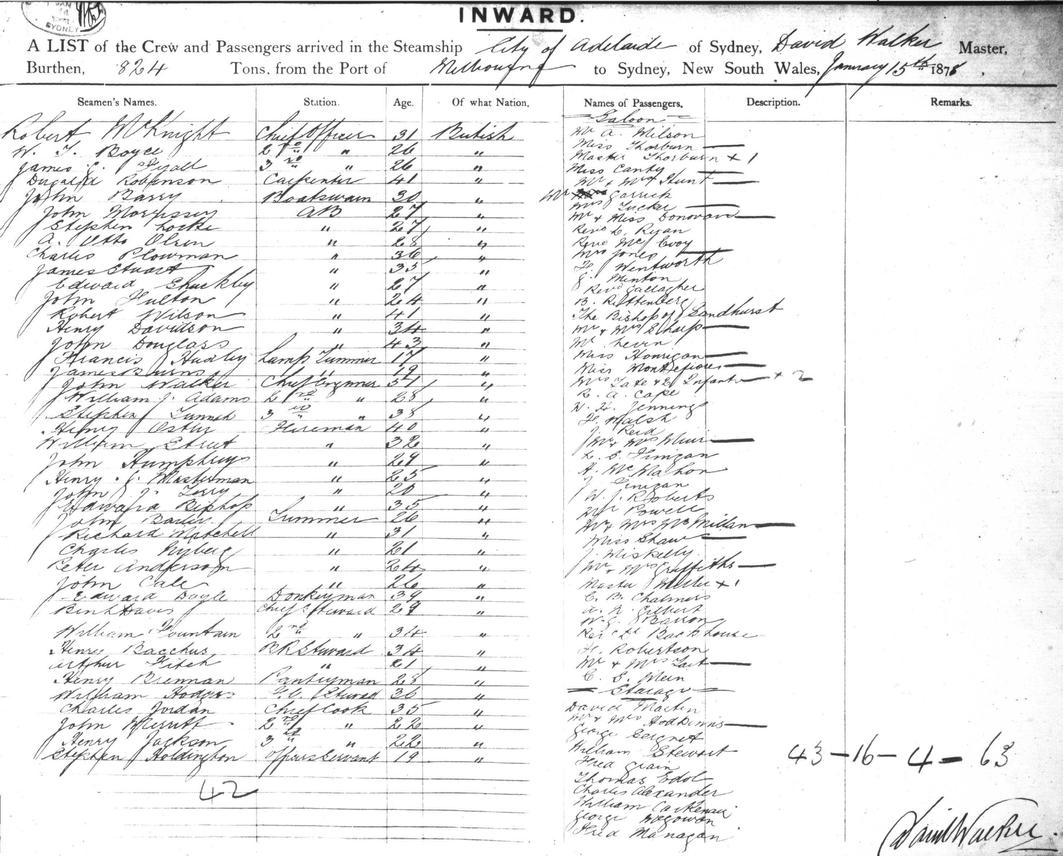 SYDNEY
INWARD.
A LIST of the Crew and Passengers arrived in the Steamship City of Adelaide of Sydney, David Walker Master,
Burthen, 824 Tons. from the Port of Melbourne to Sydney, New South Wales, January 15th 1878.
Seamen's Names. Station. Age. Of what Nation.
Robert McKnight Chief Officer 31 British
W. T. Boyce 2nd " 26 "
James 3rd " 26 "
Robinson Carpenter 41 "
John Barry Boatswain 30 "
John Morrissey AB 27 "
Stephen Locke " 27 "
A. Otto Olsen " 28 "
Charles Plowman " 36 "
James Stuart " 35 "
Edward Shuckley " 27 "
John Fulton " 24 "
Robert Wilson " 41 "
Henry Davidson " 34 "
John Douglass " 43 "
Francis Hudley Lamp Trimmer 17 "
James Burns " 19 "
John Walker Chief Engineer 51 "
William J. Adams 2nd " 28 "
Stephen 3rd " 38 "
Henry Fireman 40 "
William Strut " 32 "
John Humphreys " 29 "
Henry J. Masterman " 25 "
John J. Terry " 20 "
Edward Bishop " 35 "
John Bailey Trimmer 26 "
Richard Mitchell " 31 "
Charles Nyberg " 21 "
Peter Anderson " 24 "
John Cale " 26 "
Edward Doyle Donkeyman 39 "
Davis Chief Steward 29 "
William Fountain 2nd " 34 "
Henry Bacchus B.R. Steward 34 "
Arthur Fitch " 21 "
Henry Brennan Pantryman 28 "
William Hodges Steward 36 "
Charles Jordan Chief Cook 35 "
John Merritt 2nd " 22 "
Henry Jackson 3rd " 22 "
Stephen Holdington Officers Servant 19 "
42
Names of Passengers. Description. Remarks.
Saloon
Mr A. Wilson
Miss Thorburn
Master Thorburn + 1
Miss Canty
Mr & Mrs Hunt
Mr Garrick
Mrs Tucker
Mr & Miss Donovan
Revd L. Ryan
Revd McEvoy
Mrs Jones
Wentworth
Minton
Revd Gallagher
B. Rettenberg
The Bishop of Sandhurst
Mr & Mrs Sharp
Mr Levin
Miss Hannigan
Miss Montefiores
Mrs Cape & 2 Infants + 2
R. A. Cape
Jennings
Walsh
J. Reid
Mr & Mrs Muir
L. S. Finigan
A. McMahon
J. Finigan
W. J. Roberts
Mr Powell
Mr & Mrs McMillan
Miss Shaw
J. Miskelly
Mr & Mrs Griffiths
Master Miller + 1
C. B. Chalmers
Gilbert
W. G. Barron
Backhouse
H. Robertson
Mr & Mrs Tait
C. E. Mein
Steerage
David Martin
Mr & Mrs Hoddinns
George Seignet
William Stewart
Fred Grain
Thomas Edol
Charles Alexander
William Carkensie
George Magowan
Fred Managan
43-16-4-63
David Walker